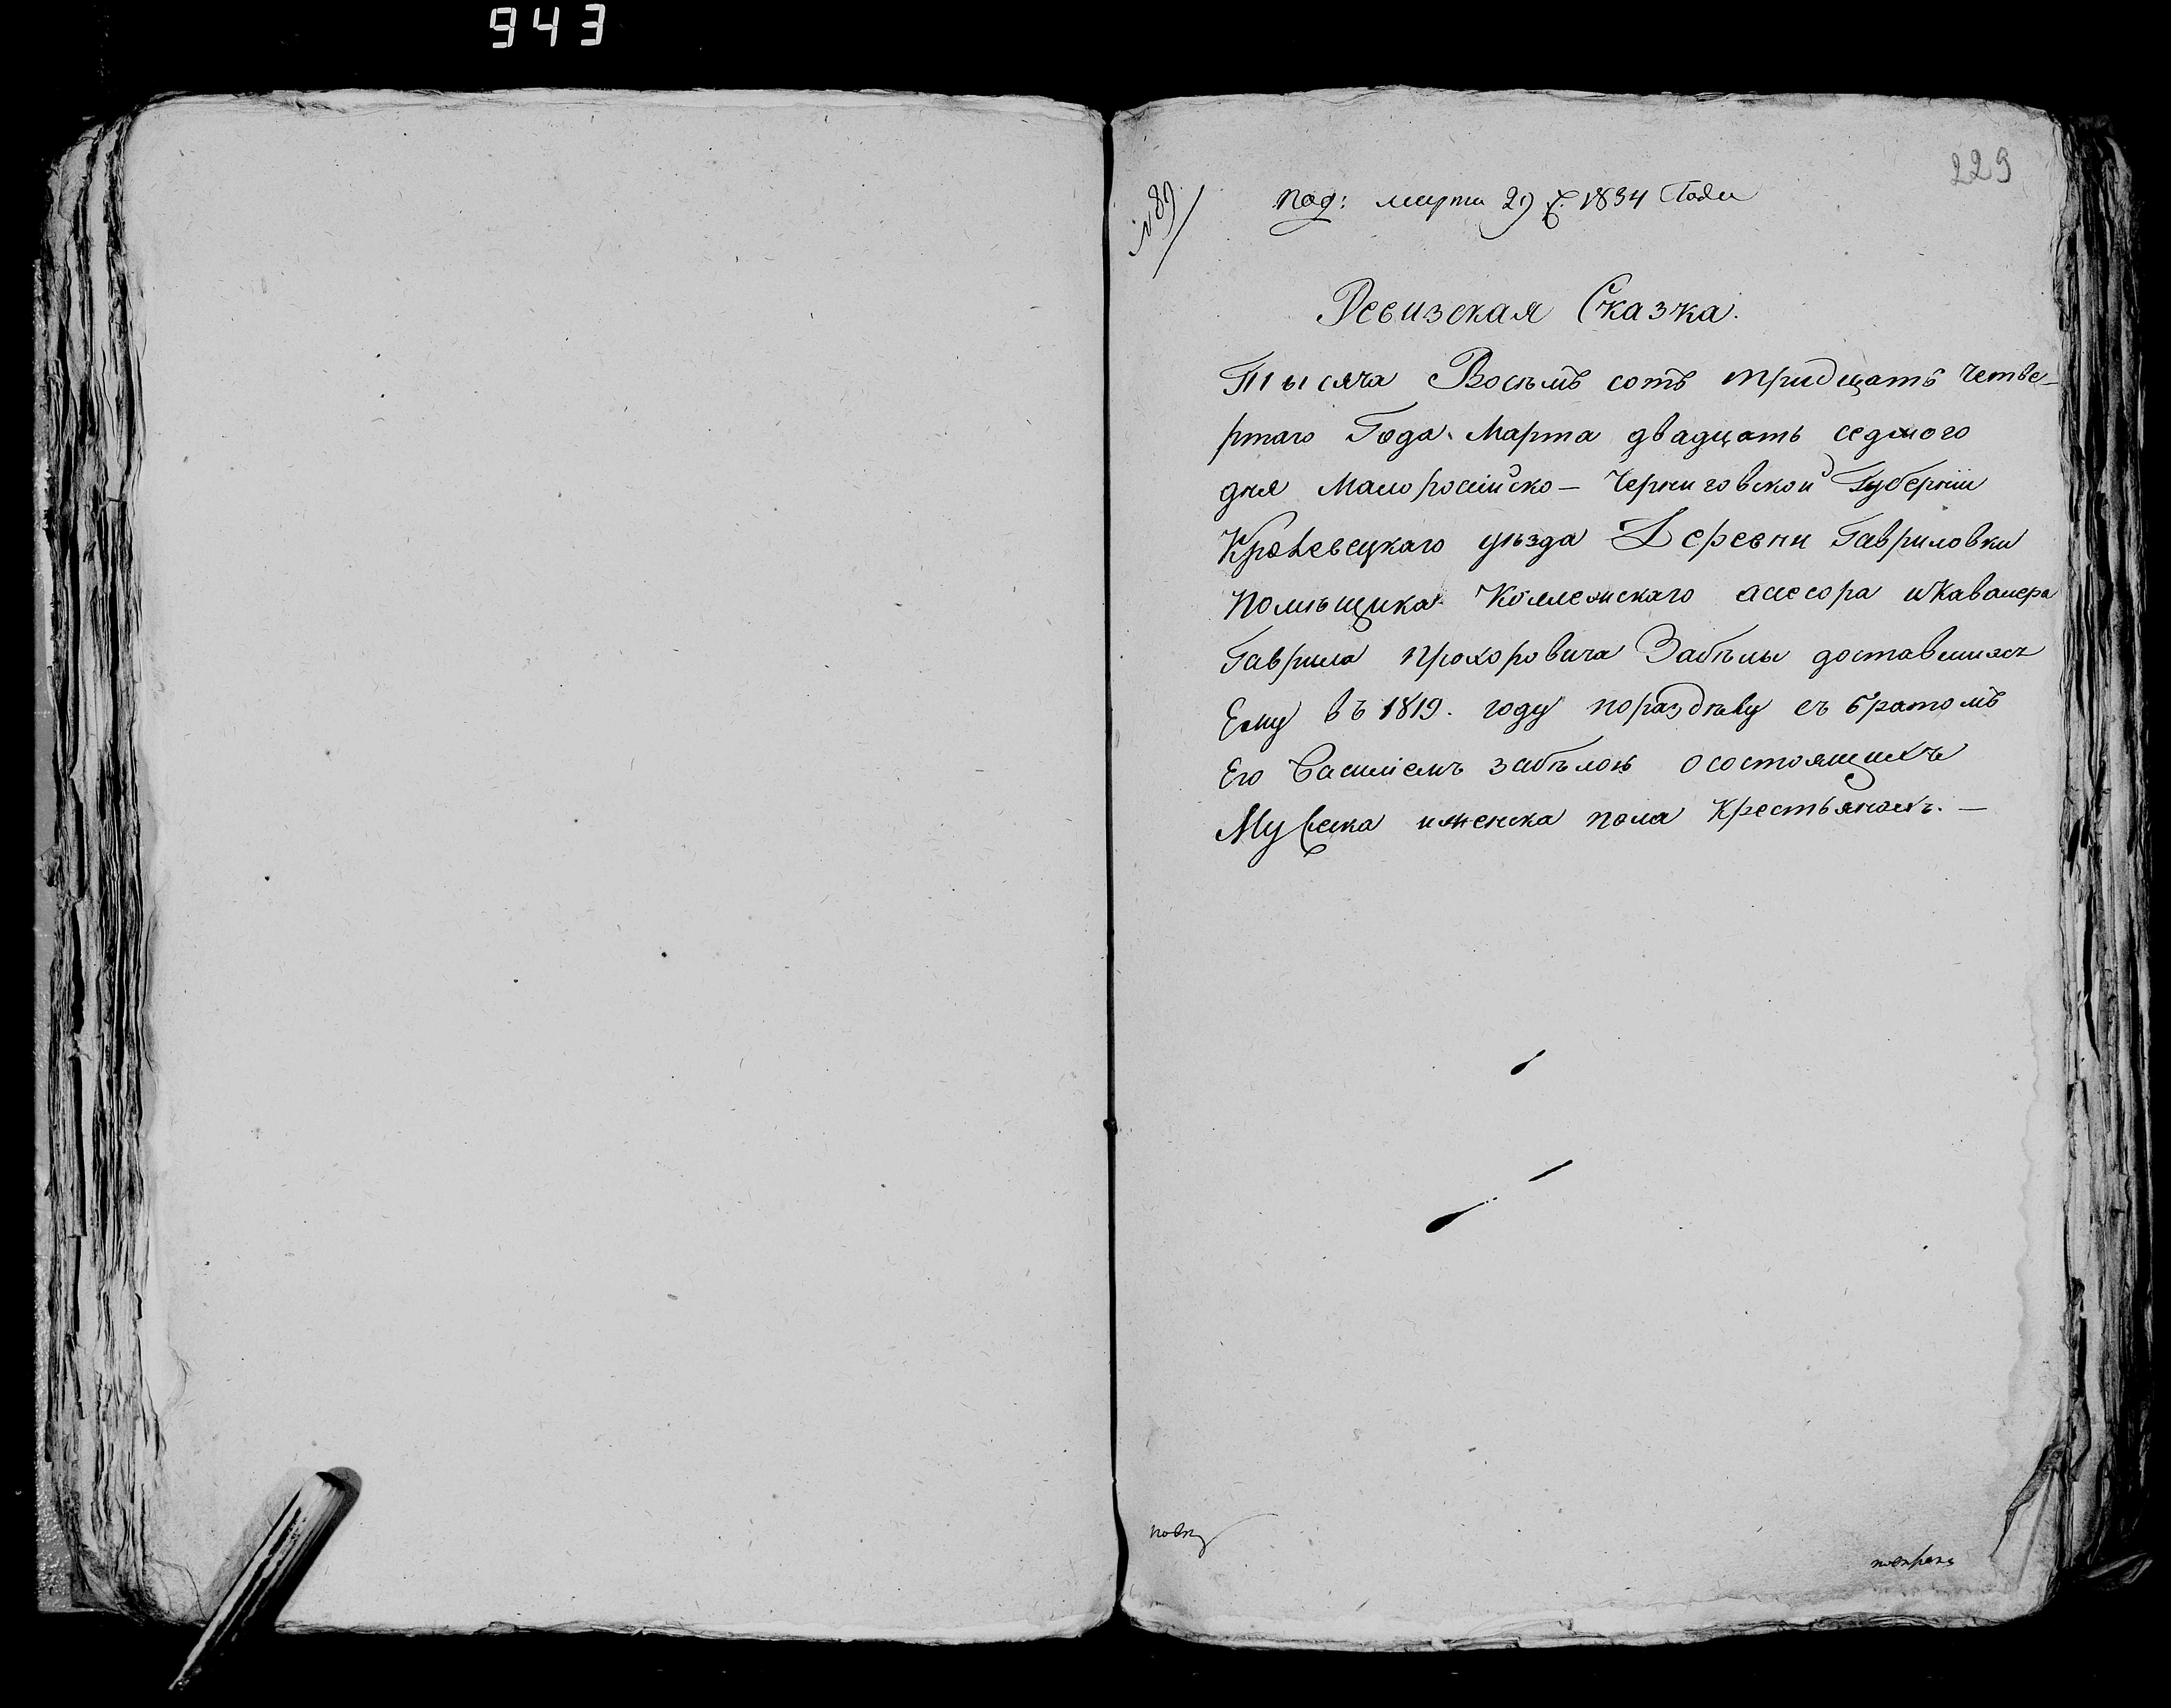 943
229
№ 89
Под: марта 29 д. 1834 Года
Ревизская Сказка.
Тысяча Восѣмъ сотъ тридцать четве-
ртаго Года. Марта двадцать седмого
дня Малоросiйско - Черниговской Губернiи
Кролевецкаго уѣзда Деревни Гавриловки
Помѣщика Коллежскаго асесора и Кавалера
Гаврила Прохоровича Забѣлы доставшихся
Ему въ 1819. году по раздѣлу съ братомъ
Его Василiемъ Забѣлою о состоящихъ
Мужеска и женска пола Крестьянахъ. —